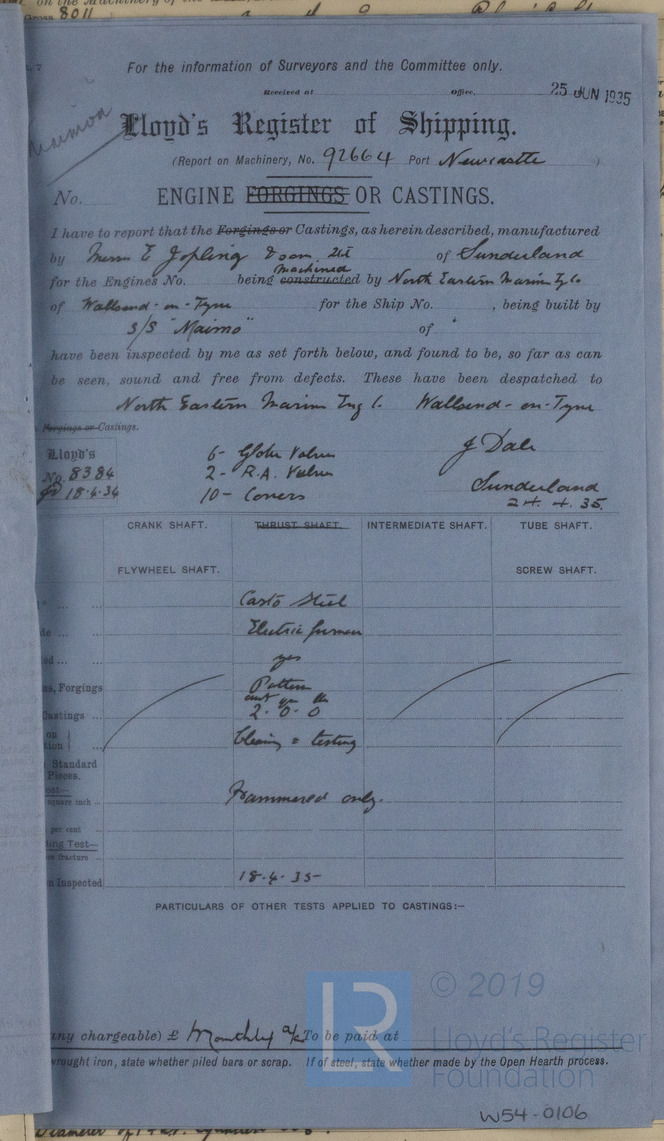 8011
For the information of Surveyors and the Committee only.
Received at Office, 25 JUN 1935
Lloyd's Register of Shipping.
(Report on Machinery, No. 92664 Port Newcastle )
No. ENGINE FORGINGS OR CASTINGS.
I have to report that the Forgings or Castings, as herein described, manufactured
by Messrs E Jopling & Son, Ltd of Sunderland
machined
for the Engines No. being constructed by North Eastern Marine Eng Co
of Wallsend-on-Tyne for the Ship No. , being built by
S/S "Maimo" of "
have been inspected by me as set forth below, and found to be, so far as can
be seen, sound and free from defects. These have been despatched to
North Eastern Marine Eng Co. Wallsend-on-Tyne
Forgings or Castings.
Lloyd's 6- Globe Valves J Dale
No. 8384 2- R.A. Valves
18.4.34 10- Covers Sunderland
24.4.35.
CRANK SHAFT. THRUST SHAFT. INTERMEDIATE SHAFT. TUBE SHAFT.
FLYWHEEL SHAFT. SCREW SHAFT.
Cast Steel
Electric furnace
yes
Forgings Pattern
cwt qrs lbs
Castings ... 2-0-0
Cleaning & testing
Standard
Pieces.
square inch ... Hammered only.
per cent ...
Test—
fracture ...
Inspected 18.4.35
PARTICULARS OF OTHER TESTS APPLIED TO CASTINGS:—
any chargeable) £ Monthly a/c To be paid at
wrought iron, state whether piled bars or scrap. If of steel, state whether made by the Open Hearth process.
LR
© 2019
Lloyd's Register
Foundation
W54-0106